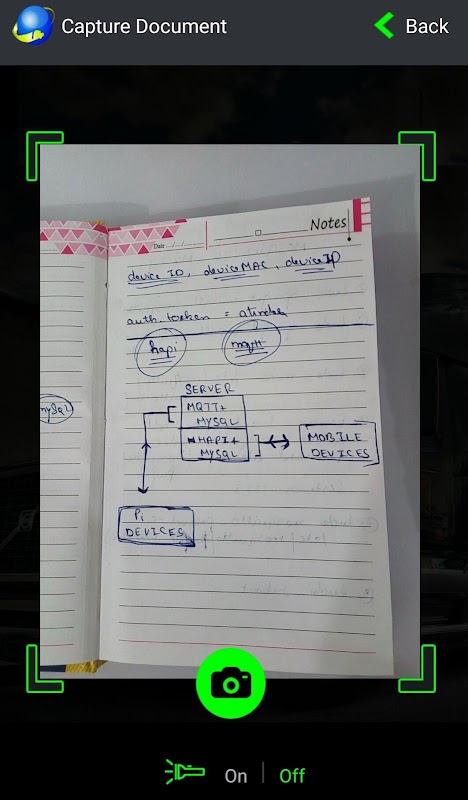 Capture Document
Back
Notes
Date
device ID, device MAC, device IP
auth token =
hapi
mqtt
SERVER
MySQL
MQTT+
MYSQL
HAPI+
MYSQL
MOBILE
DEVICES
Pi
DEVICES
On | Off